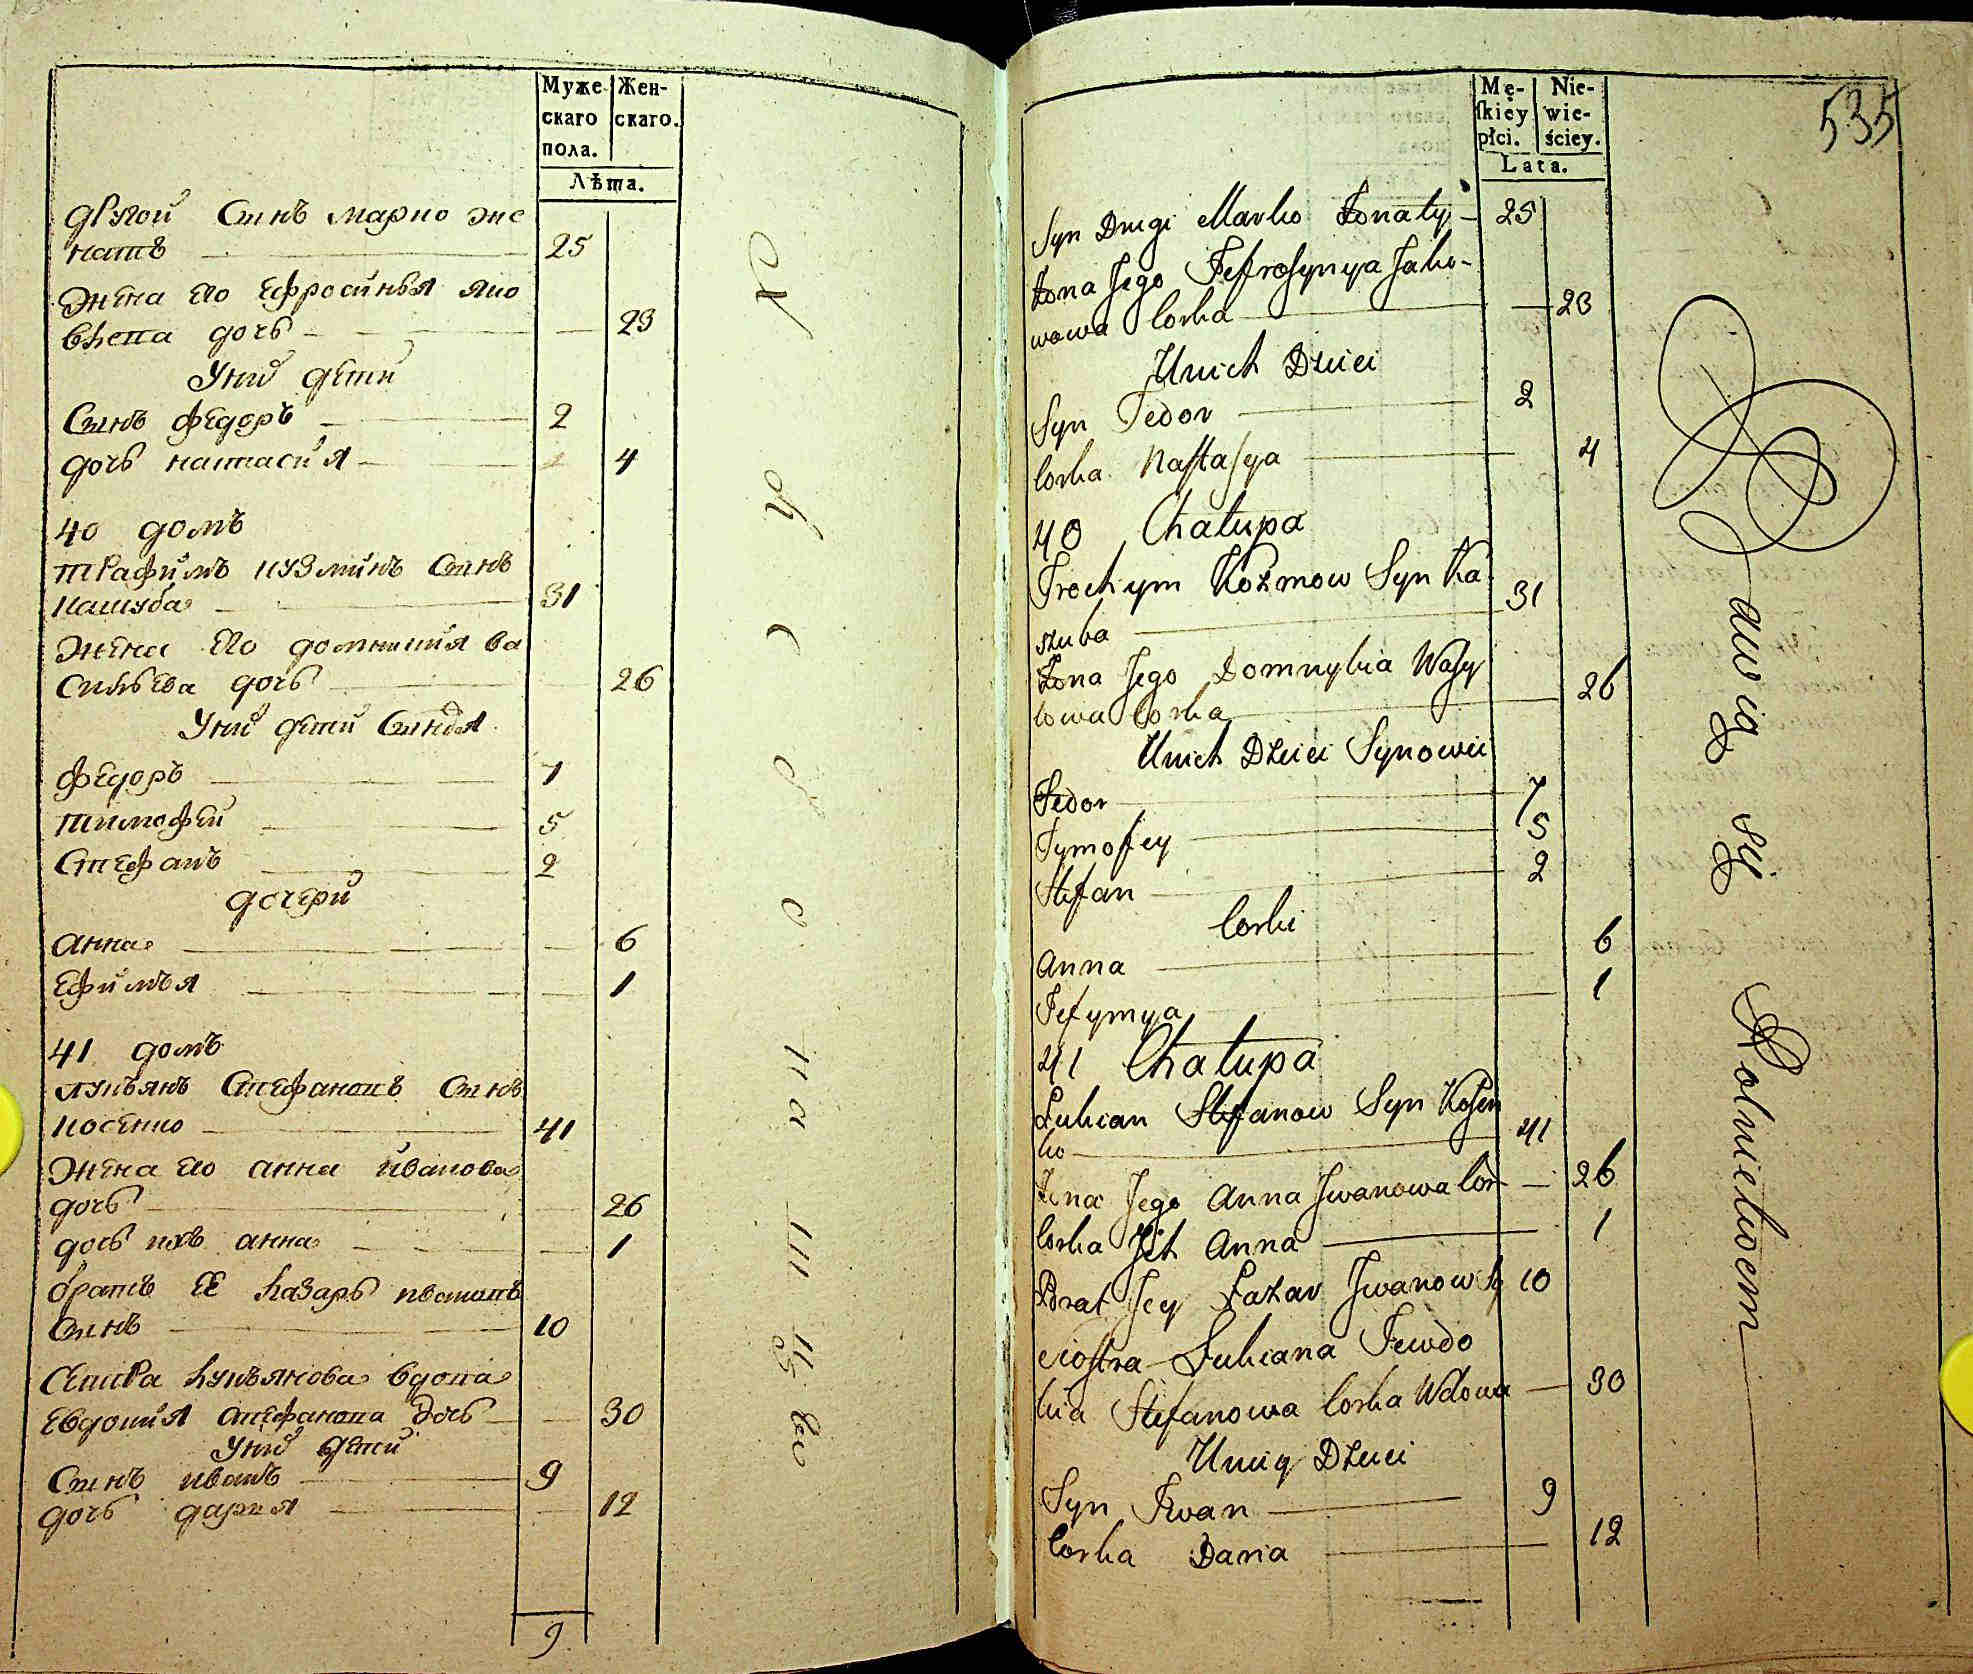 Муже
скаго
пола.
Жен-
скаго.
Лѣта.
другой Сынъ марко же
натъ 25
Жена его Ефросинья яко
влева дочь 23
У них дети
Сынъ федоръ 2
дочь настасия 4
40 домъ
трафимъ кузминъ Сынъ
кашуба 31
Жена его домникия ва
сильева дочь 26
У них дети Сыновя
федоръ 7
тимофей 5
Стефанъ 2
дочери
анна 6
ефимья 1
41 домъ
лукьянъ Стефановъ Сынъ
косенко 41
Жена его анна иванова
дочь 26
дочь ихъ анна 1
братъ ее лазарь ивановъ
Сынъ 10
Сестра лукьянова вдова
Евдокия стефанова дочь 30
У ней дети
Сынъ иванъ 9
дочь дария 12
9
535
Mę-
skiey
płci.
Nie-
wie-
ściey.
Lata.
Syn Drugi Marko Żonaty 25
Żona Jego Jefrosynya Jako-
wowa Corka 23
Unich Dzieci
Syn Fedor 2
Corka Nastasya 4
40 Chałupa
Trochym Kozmow Syn Ka
szuba 31
Żona Jego Domnykia Wasy
lowa Corka 26
Unich Dzieci Synowie
Fedor 7
Tymofey 5
Stefan 2
Corki
Anna 6
Jefymya 1
41 Chałupa
Łukian Stefanow Syn Kosen
ko 41
Żona Jego Anna Jwanowa Cor 26
Corka Jch Anna 1
Brat Jey Łazar Jwanow Sy 10
Siostra Łukiana Jewdo
kia Stefanowa Corka Wdowa 30
Uniey Dzieci
Syn Jwan 9
Corka Daria 12
Bawią się Rolnictwem